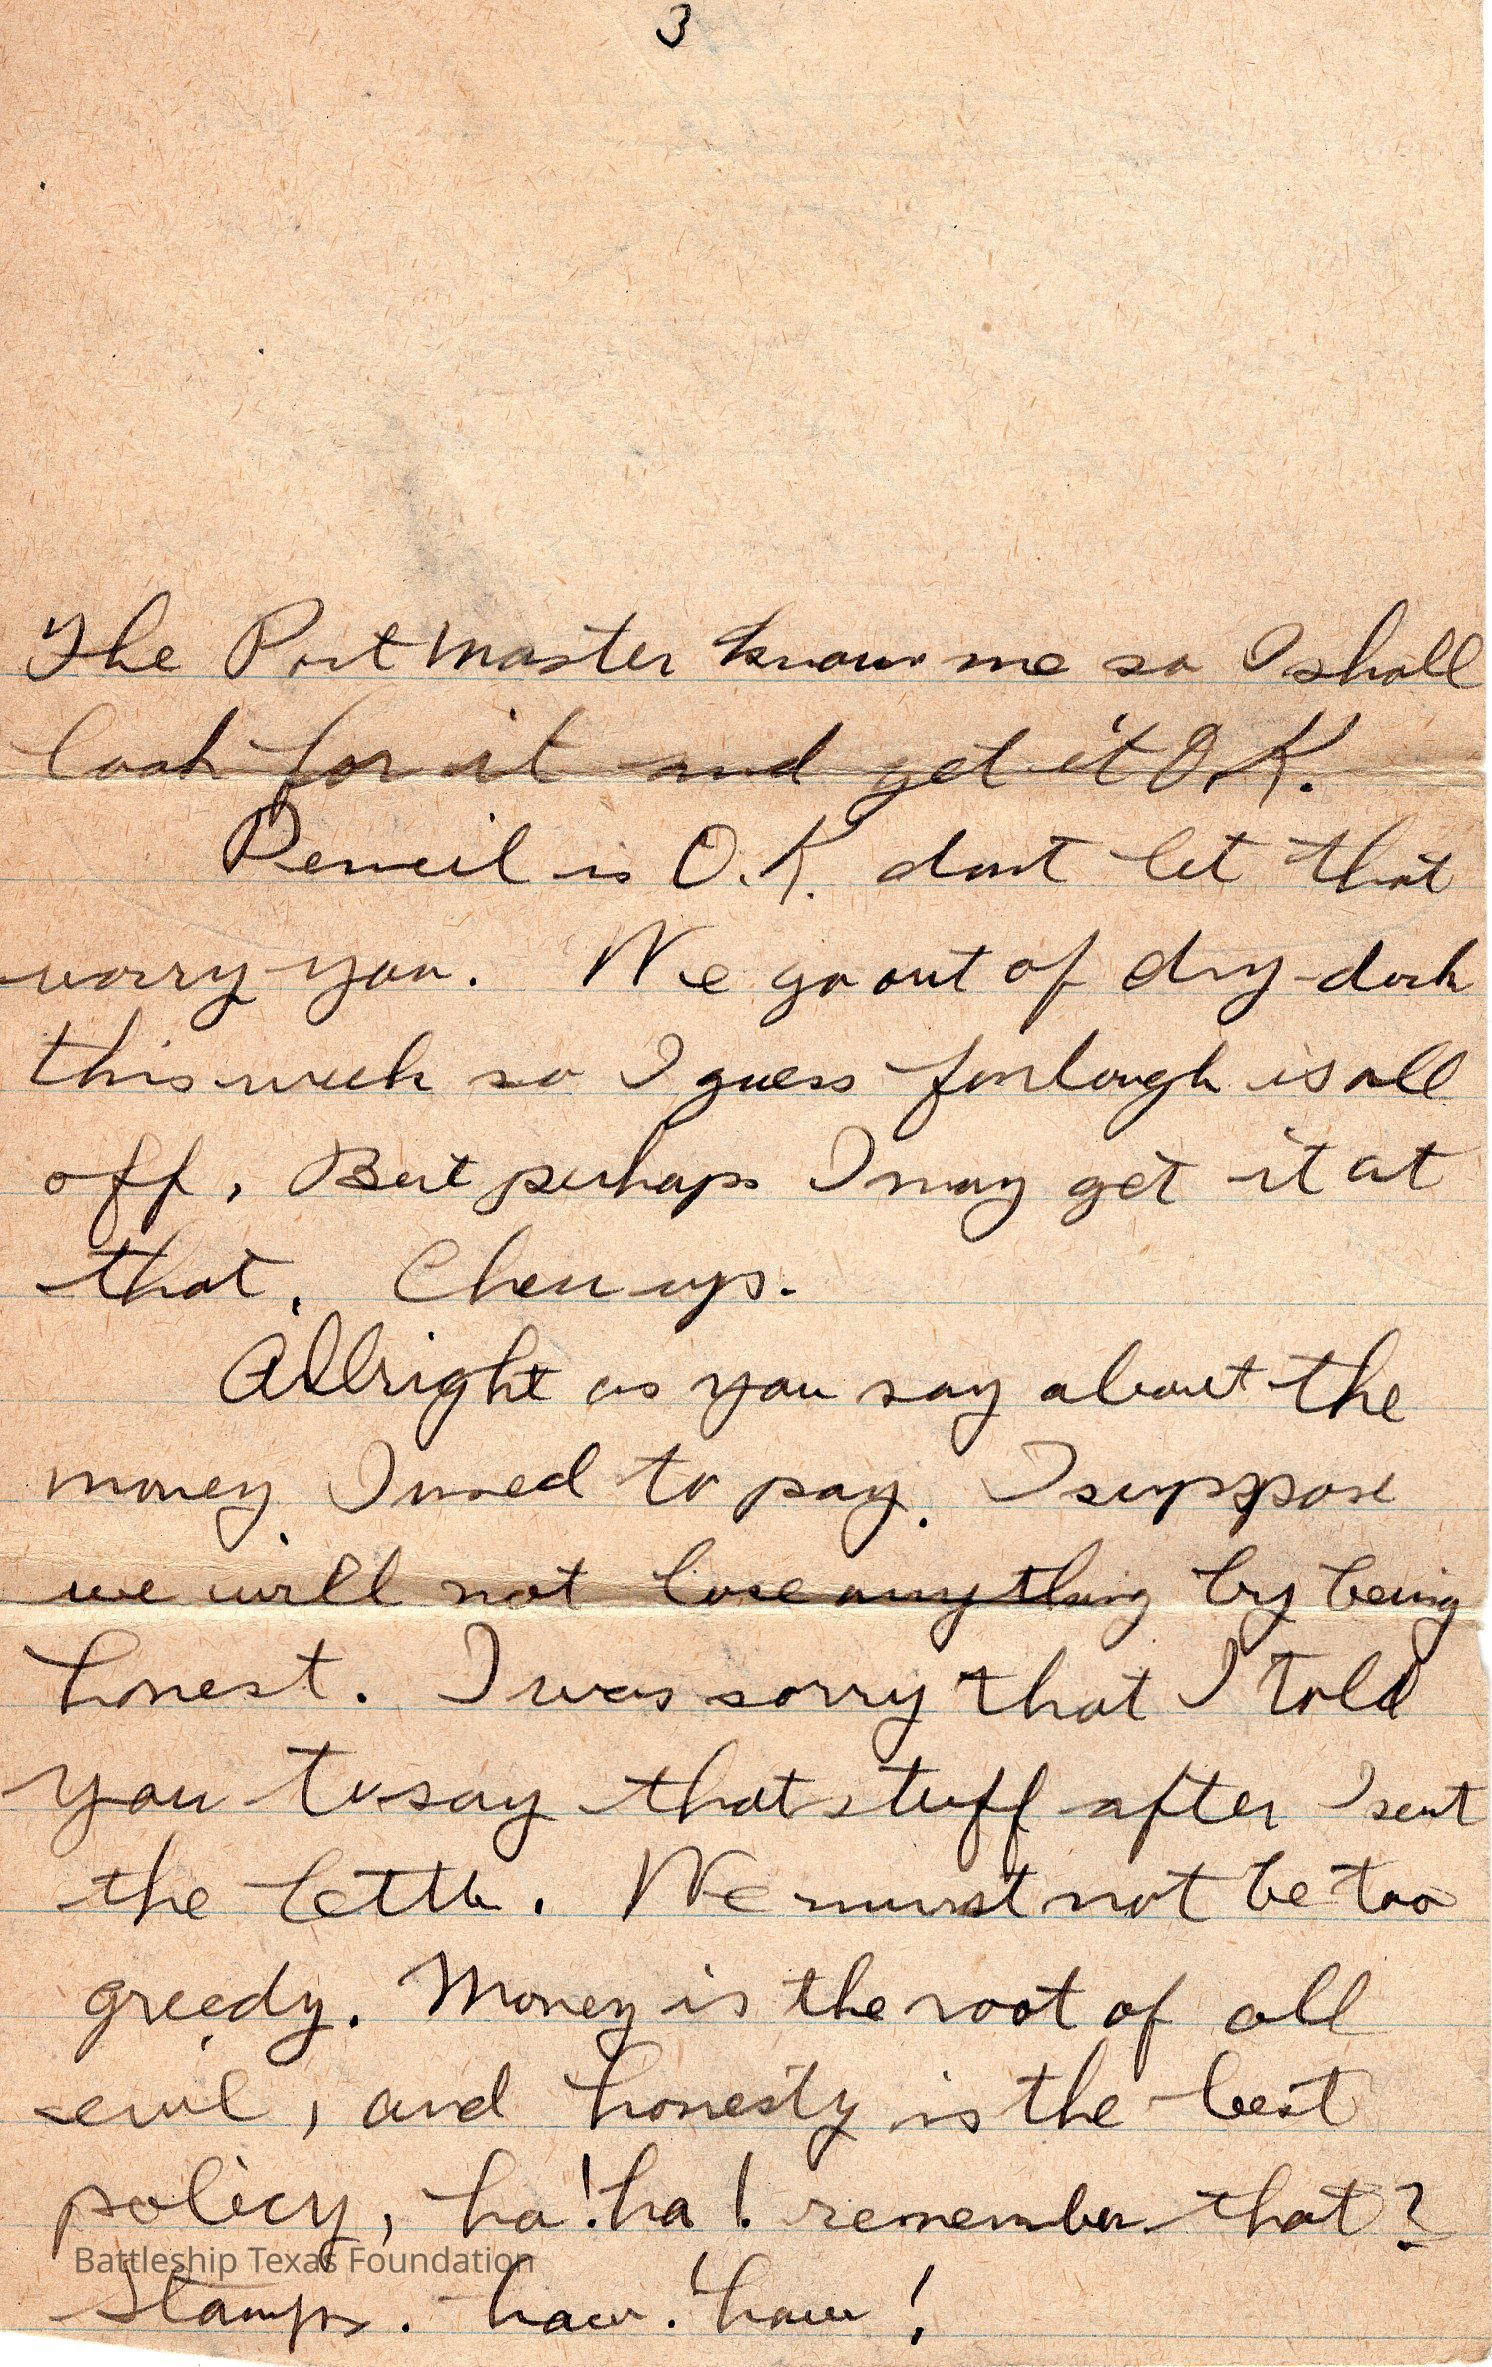 3
The Post Master knows me so I shall
look for it and get it O.K.
Pencil is O.K. dont let that
worry you. We go out of dry-dock
this week so I guess furlough is all
off, But perhaps I may get it at
that. Cheer up.
Allright as you say about the
money I used to pay. I suppose
we will not lose anything by being
honest. I was sorry that I told
you to say that stuff after I sent
the letter. We must not be too
greedy. Money is the root of all
evil, and honesty is the best
policy, ha! ha! remember that?
Battleship Texas Foundation
Stamps. haw! haw!